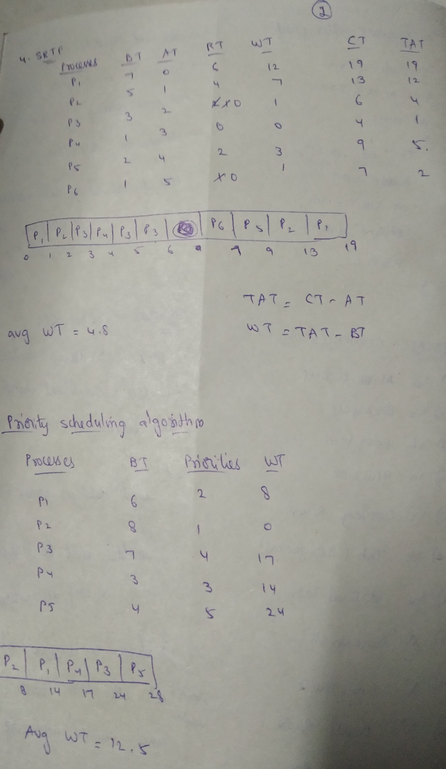 2
4. SRTP
Processes BT AT RT WT CT TAT
P1 7 0 6 12 19 19
P2 5 1 4 7 13 12
P3 3 2 0 1 6 4
P4 1 3 0 0 4 1
P5 2 4 2 3 9 5.
P6 1 5 0 1 7 2
P1 P2 P3 P4 P3 P3 P6 P5 P2 P1
0 1 2 3 4 5 6 7 9 13 19
TAT = CT - AT
avg WT = 4.8 WT = TAT - BT
Priority scheduling algorithm
Processes BT Priorities WT
P1 6 2 8
P2 8 1 0
P3 7 4 17
P4 3 3 14
P5 4 5 24
P2 P1 P4 P3 P5
8 14 17 24 28
Avg WT = 12.5